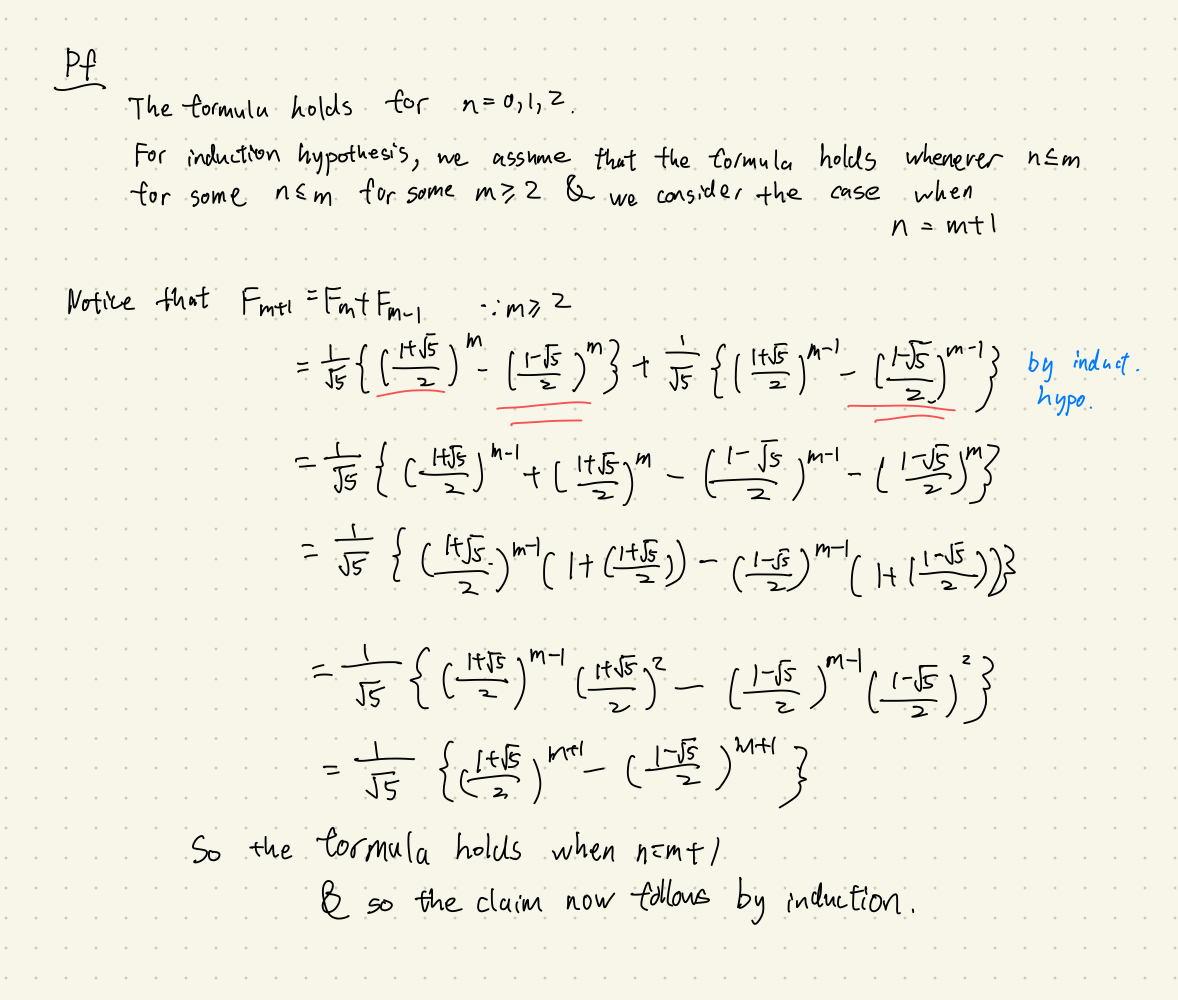 Pf
The formula holds for n=0,1,2.
For induction hypothesis, we assume that the formula holds whenever n≤m
for some n≤m for some m≥2 & we consider the case when
n = m+1
Notice that F_{m+1} = F_m + F_{m-1} ∵ m≥2
= 1/√5 { ((1+√5)/2)^m - ((1-√5)/2)^m } + 1/√5 { ((1+√5)/2)^{m-1} - ((1-√5)/2)^{m-1} } by induct.
hypo.
= 1/√5 { ((1+√5)/2)^{m-1} + ((1+√5)/2)^m - ((1-√5)/2)^{m-1} - ((1-√5)/2)^m }
= 1/√5 { ((1+√5)/2)^{m-1} (1+((1+√5)/2)) - ((1-√5)/2)^{m-1} (1+((1-√5)/2)) }
= 1/√5 { ((1+√5)/2)^{m-1} ((1+√5)/2)^2 - ((1-√5)/2)^{m-1} ((1-√5)/2)^2 }
= 1/√5 { ((1+√5)/2)^{m+1} - ((1-√5)/2)^{m+1} }
So the formula holds when n=m+1
& so the claim now follows by induction.